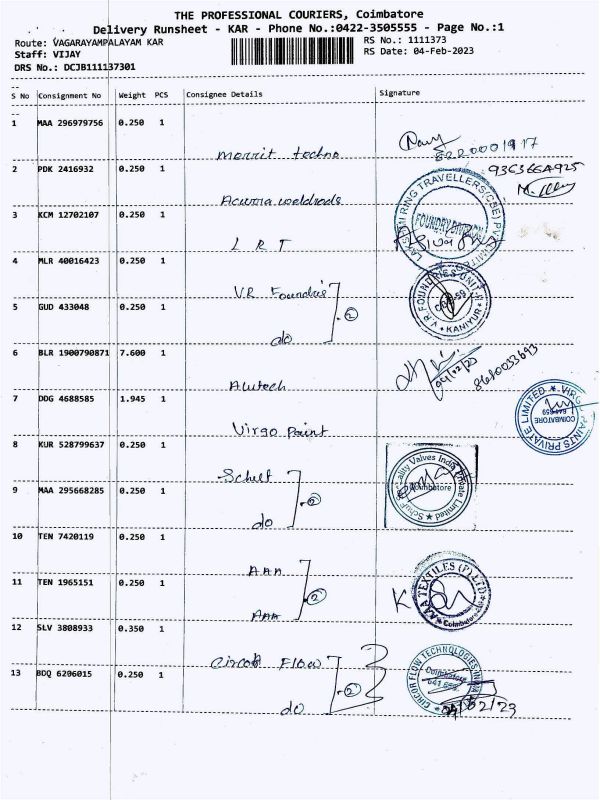 THE PROFESSIONAL COURIERS, Coimbatore
Delivery Runsheet - KAR - Phone No.:0422-3505555 - Page No.:1
Route: VAGARAYAMPALAYAM KAR
RS No.: 1111373
Staff: VIJAY
RS Date: 04-Feb-2023
DRS No.: DCJB111137301
S No Consignment No Weight PCS Consignee Details Signature
1 MAA 296979756 0.250 1
Merrit techno
8220001917
2 PDK 2416932 0.250 1
9363664925
3 KCM 12702107 0.250 1
LAKSHMI RING TRAVELLERS(CBE) PVT LIMITED
FOUNDRY DIVISION
L R T
4 MLR 40016423 0.250 1
V.R. FOUNDRIES UNIT-II
KANIYUR
V.R Foundris
5 GUD 433048 0.250 1
2
do
6 BLR 1900790871 7.600 1
04/02/23
8610033693
Alutech
7 DDG 4688585 1.945 1
VIRGO PAINTS PRIVATE LIMITED
COIMBATORE
641 659
Virgo Paint
8 KUR 528799637 0.250 1
Schuf
Valves India Private Limited
Coimbatore
9 MAA 295668285 0.250 1
2
do
10 TEN 7420119 0.250 1
AAA
AAA TEXTILES (P) LTD
Coimbatore
11 TEN 1965151 0.250 1
2
AAA
12 SLV 3808933 0.350 1
Circor Flow
CIRCOR FLOW TECHNOLOGIES INDIA
Coimbatore
641 659
13 BDQ 6206015 0.250 1
2
do
04/02/23